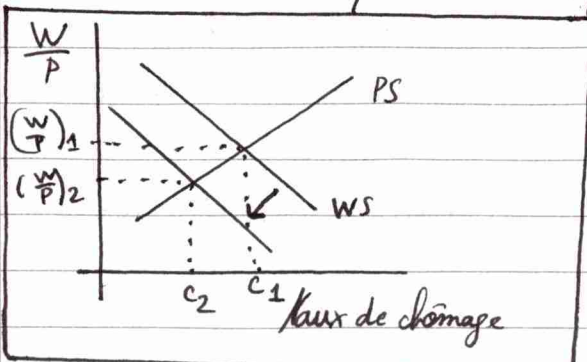 W
P
PS
(W/P)1
(W/P)2
WS
C2 C1
Taux de chômage